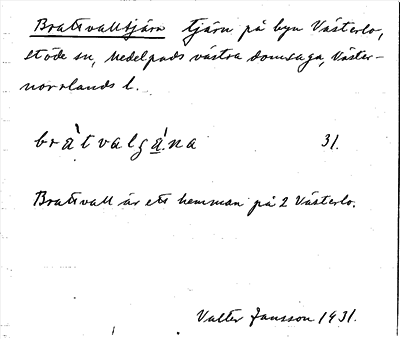 Brattvalltjärn tjärn på byn Västerlo,
Stöde sn, Medelpads västra domsaga, Väster-
norrlands l.
bràtvalgá̱na 31.
Brattvall är ett hemman på 2 Västerlo.
Valter Jansson 1931.